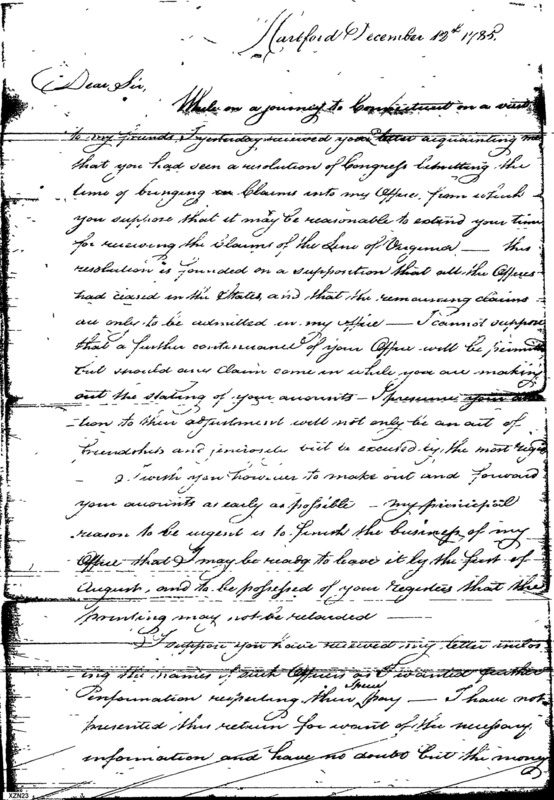 Hartford December 13th 1785.
Dear Sir,
While on a journey to Connecticut on a visit
to my friends, I yesterday received your letter acquainting me
that you had seen a resolution of Congress limitting the
time of bringing in Claims into my Office, from which
you suppose that it may be reasonable to extend your time
for receiving the Claims of the Line of Virginia — this
resolution is founded on a supposition that all the Offices
had ceased in the States, and that the remaining claims
are only to be admitted in my office — I cannot suppose
that a further continuance of your Office will be permitted
but should any Claim come in while you are making
out the stating of your accounts — I presume your atten
tion to their adjustment will not only be an act of
friendship and generosity but be excused by the most rigid
— I wish you however to make out and forward
your accounts as early as possible — my principal
reason to be urgent is to finish the business of my
Office that I may be ready to leave it by the first of
August, and to be possessed of your registers that the
printing may not be retarded —
I suppose you have received my letter inclos
ing the names of such Officers as I wanted further
information respecting their pay — I have not
presented this return for want of the necessary
information and have no doubt but the money
XZN23